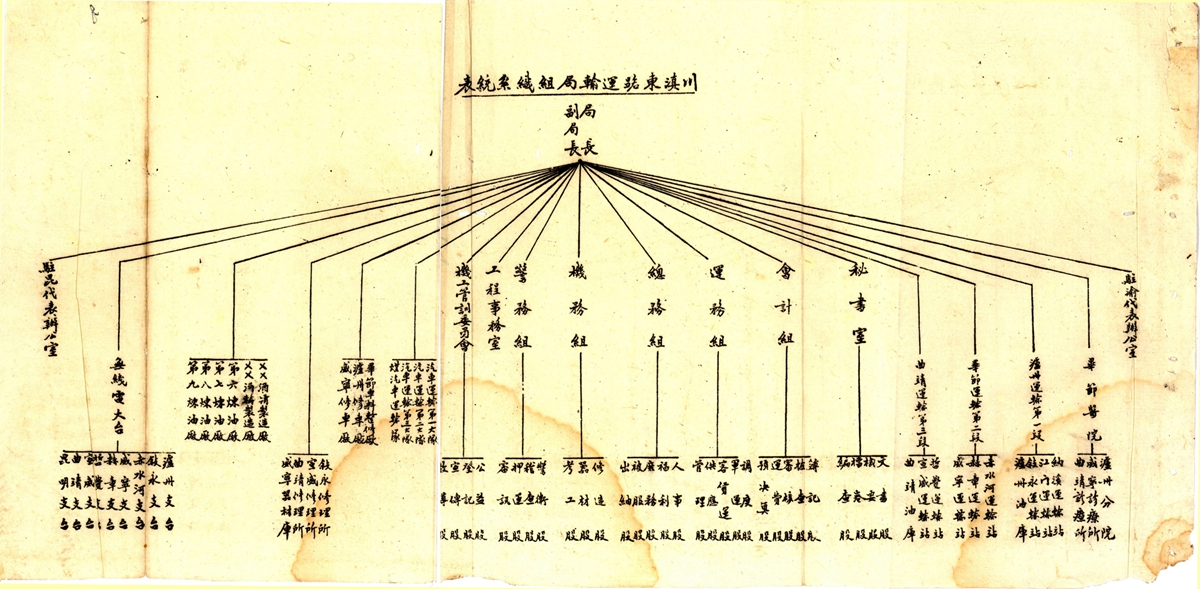 川滇東路運輸局組織系統表
局長
副局長
駐渝代表辦公室
畢節醫院
瀘州分院
威寧診療所
曲靖診療所
瀘州運輸第一段
納溪運輸站
江門運輸站
敘永運輸站
瀘州油庫
畢節運輸第二段
赤水河運輸站
赫章運輸站
威寧運輸站
曲靖運輸第三段
哲覺運輸站
宣威運輸站
曲靖油庫
秘書室
文書股
檔案股
編查股
會計組
簿記股
審核股
運費股
預決算股
運務組
調度股
軍運股
客貨運股
供應股
管理股
總務組
人事股
福利股
庶務股
被服股
出納股
機務組
修造股
器材股
考工股
警務組
警衛股
稽查股
押運股
審訊股
工程事務室
機工管訓委員會
公益股
登記股
汽車運輸第一大隊
汽車運輸第二大隊
汽車運輸第三大隊
煤汽車運輸隊
瀘州修車廠
威寧修車廠
敘永修理所
宣威修理所
曲靖修理所
威寧器材庫
第六煉油廠
第七煉油廠
第八煉油廠
第九煉油廠
無綫電大台
瀘州支台
敘永支台
赤水河支台
威寧支台
赫章支台
宣威支台
曲靖支台
昆明支台
駐昆代表辦公室